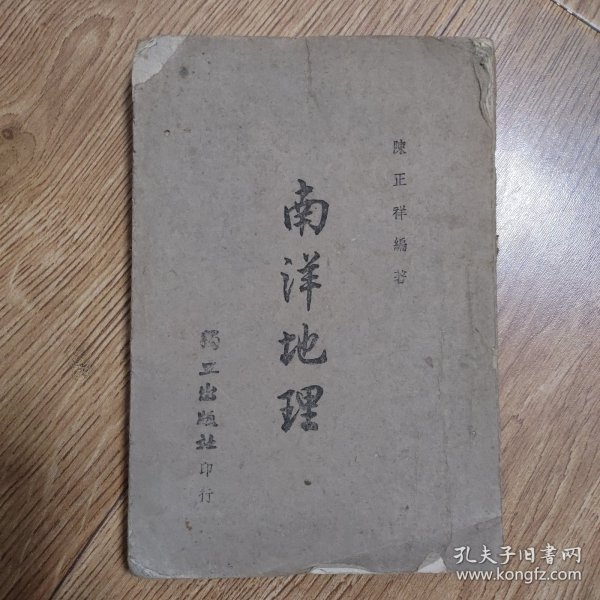 陳正祥編著
南洋地理
獨立出版社印行
孔夫子旧书网
www.kongfz.com